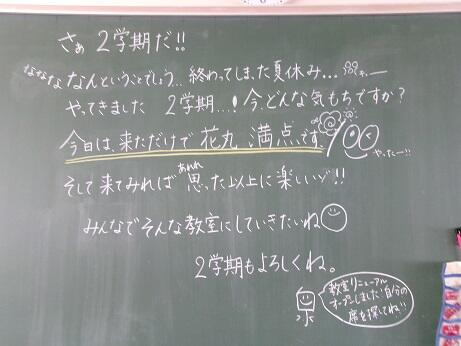 さぁ 2学期だ!!
なななななんということでしょう... 終わってしまった夏休み...
やってきました 2学期...! 今、どんな気もちですか?
今日は、来ただけで 花丸 満点です。
やったー!!
そして来てみれば 思った以上に楽しいゾ!!
あれれ
みんなでそんな教室にしていきたいね
2学期もよろしくね。
教室リニューアル
オープンしました! 自分の
席を探してね!!